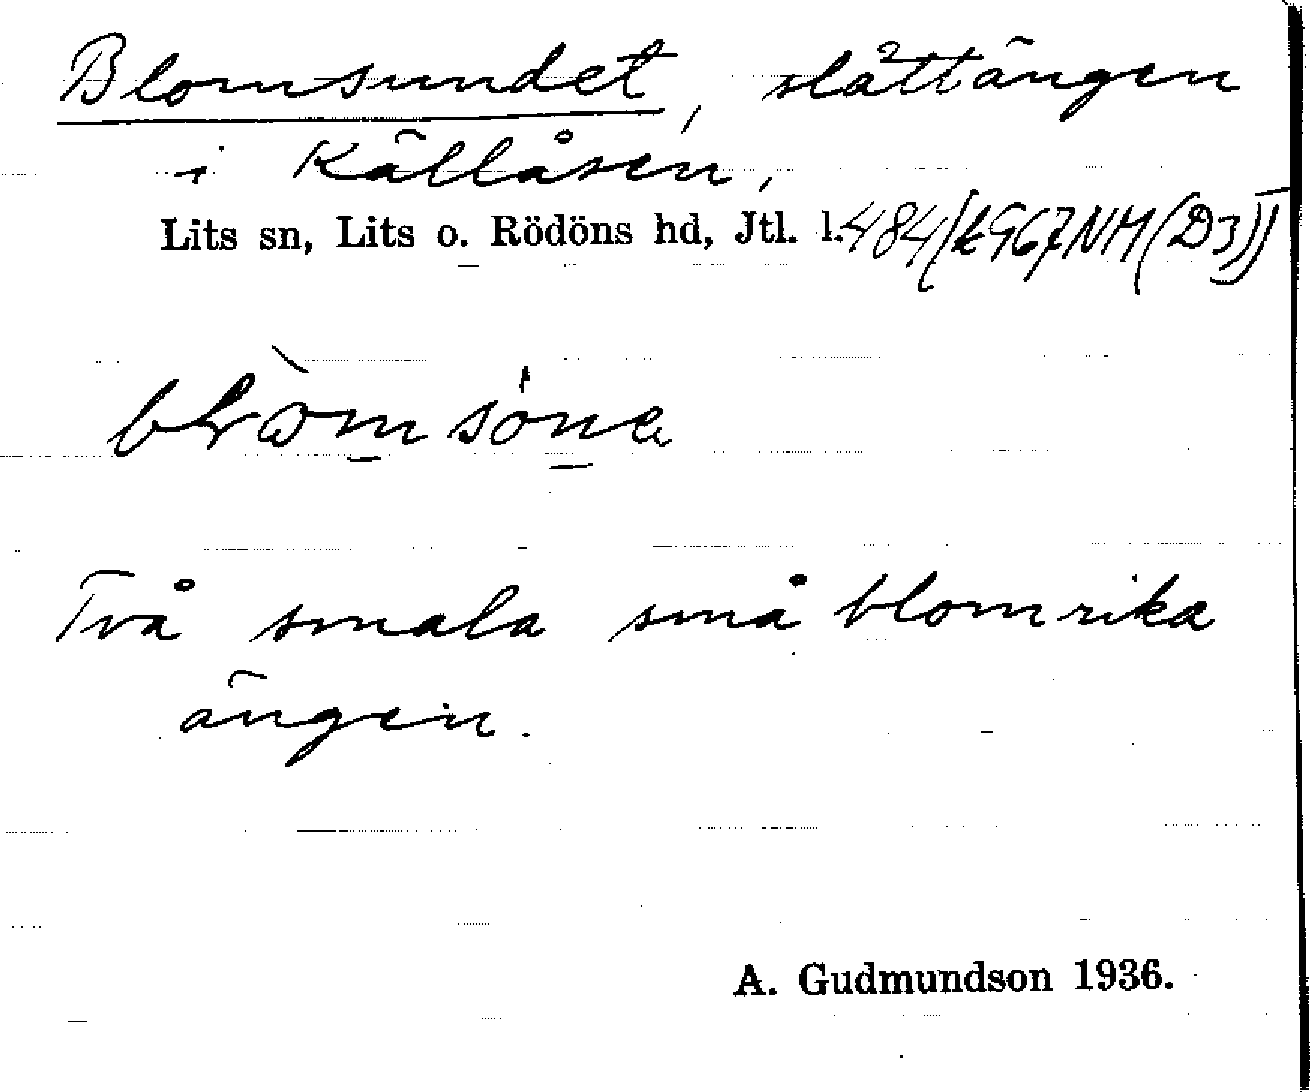 Blomsundet, slåttängen
i Källåsen,
Lits sn, Lits o. Rödöns hd, Jtl. l.
Två smala små blomrika
ängen.
A. Gudmundson 1936.